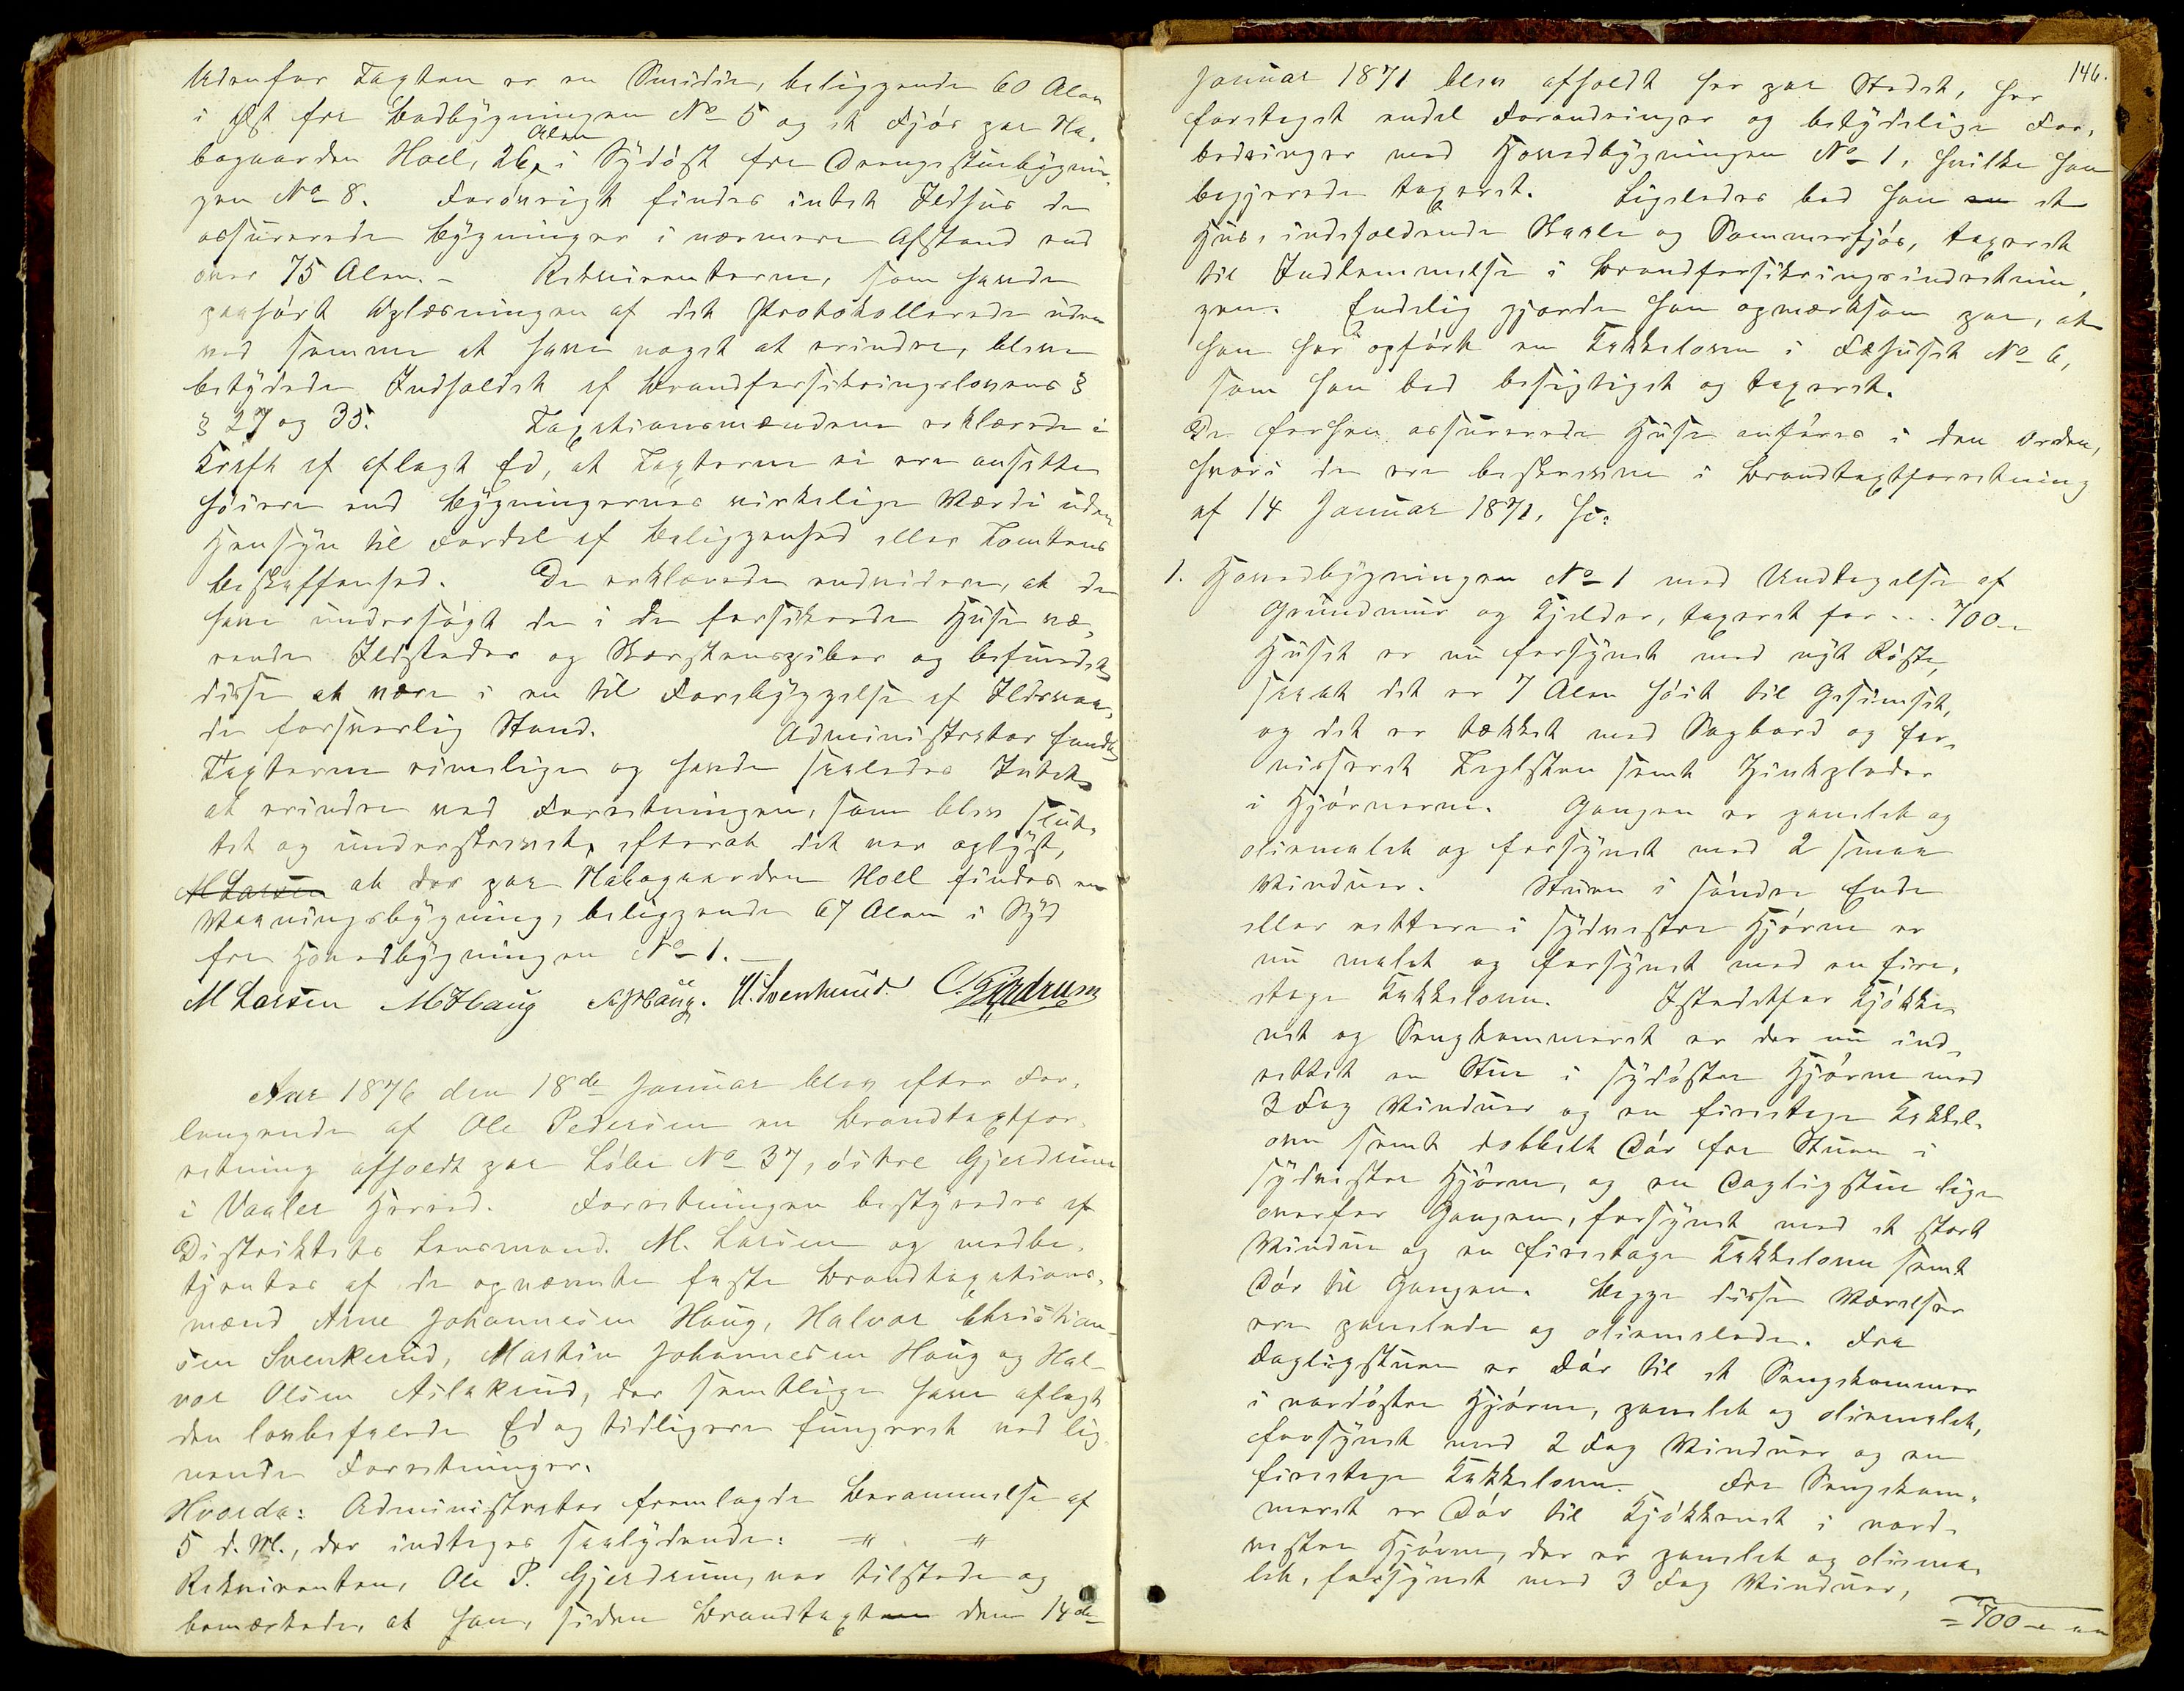 Udenfor Taxten er en Smidie, beliggende 60 Alen
i Øst fra Badbygningen No 5 og et Fjøs paa Na-
bogaarden Hoel, 26 Alen i Sydøst fra Drengestuebygnin-
gen No 8. Forøvrigt findes intet Ildhus de
assurerede Bygninger i nærmere Afstand end
over 75 Alen. – Rekvirenterne, som havde
paahørt Oplæsningen af det Protokollerede uden
ved samme at have noget at erindre, bleve
betydede Indholdet af Brandforsikringslovens §
§ 27 og 35. Taxationsmændene erklærede i
Kraft af aflagt Ed, at Taxterne ei ere ansatte
høiere end Bygningernes virkelige Værdi uden
Hensyn til Fordel af Beliggenhed eller Tomtens
Beskaffenhed. De erklærede endvidere, at de
have undersøgt de i de forsikrede Huse væ-
rende Ildsteder og Skorstenspiber og befundet
disse at være i en til Forebyggelse af Ildsvaa-
de forsvarlig Stand. Administrator fandt
Taxterne rimelige og havde saaledes Intet
at erindre ved Forretningen, som blev slut-
tet og underskrevet, efterat det var oplyst,
M Larsen at der paa Nabogaarden Hoel findes en
Vaaningsbygning, beliggende 67 Alen i Syd
fra Hovedbygningen No 1. –
M Larsen M J Haug A J Haug. H. Svenkerud. C. Gjerdrum
Aar 1876 den 18de Januar blev efter For-
langende af Ole Pedersen en Brandtaxtfor-
retning afholdt paa Løbe No 37, østre Gjerdrum
i Vaaler Herred. Forretningen bestyredes af
Distriktets Lensmand M. Larsen og medbe-
tjentes af de opnævnte faste Brandtaxations-
mænd Arne Johannesen Haug, Halvor Christian-
sen Svenkerud, Martin Johannesen Haug og Hal-
vor Olsen Aslakrud, der samtlige have aflagt
den lovbefalede Ed og tidligere fungeret ved lig-
nende Forretninger.
Hvorda: Administrator fremlagde Berammelse af
5 d. M., der indtages saalydende: –〃– –〃–
Rekvirenten, Ole P. Gjerdrum, var tilstede og
bemærkede, at han, siden Brandtaxten den 14de
146.
Januar 1871 blev afholdt her paa Stedet, har
foretaget endel Forandringer og betydelige For-
bedringer ved Hovedbygningen No 1, hvilke han
begjærede taxeret. Ligeledes bad han en et
Hus, indeholdende Skaale og Sommerfjøs, taxeret
til Indlemmelse i Brandforsikringsindretnin-
gen. Endelig gjorde han opmærksom paa, at
han har opført en Kakkelovn i Fæhuset No 6,
som han bad besigtiget og taxeret.
De forhen assurerede Huse anføres i den Orden,
hvori de ere beskrevne i Brandtaxtforretning
af 14 Januar 1871, sc:
1. Hovedbygningen No 1 med Undtagelse af
Grundmur og Kjelder, taxeret for . . . 700 –
Huset er nu forsynet med nyt Røste,
saa at det er 7 Alen høit til Gesimset,
og det er tækket med Sagbord og for-
nisseret Taglsten samt Zinkplader
i Hjørnerne. Gangen er panelet og
oliemalet og forsynet med 2 smaa
Vinduer. Stuen i søndre Ende
eller rettere i sydvestre Hjørne er
nu malet og forsynet med en fire-
etages Kakkelovn. Istedetfor Kjøkke-
net og Sengkammeret er der nu ind-
rettet en Stue i sydøstre Hjørne med
3 Fag Vinduer og en fireetages Kakkel-
ovn samt dobbelt Dør fra Stuen i
sydvestre Hjørne, og en Dagligstue lige-
overfor Gangen, forsynet med et stort
Vindue og en fireetages Kakkelovn samt
Dør til Gangen. Begge disse Værelser
ere panelede og oliemalede. Fra
Dagligstuen er Dør til et Sengekammer
i nordøstre Hjørne, panelet og oliemalet,
forsynet med 2 Fag Vinduer og en
fireetages Kakkelovn. Fra Sengekam-
meret er Dør til Kjøkkenet i nord-
vestre Hjørne, der er panelet og oliema-
let, forsynet med 3 Fag Vinduer,
= 700 –